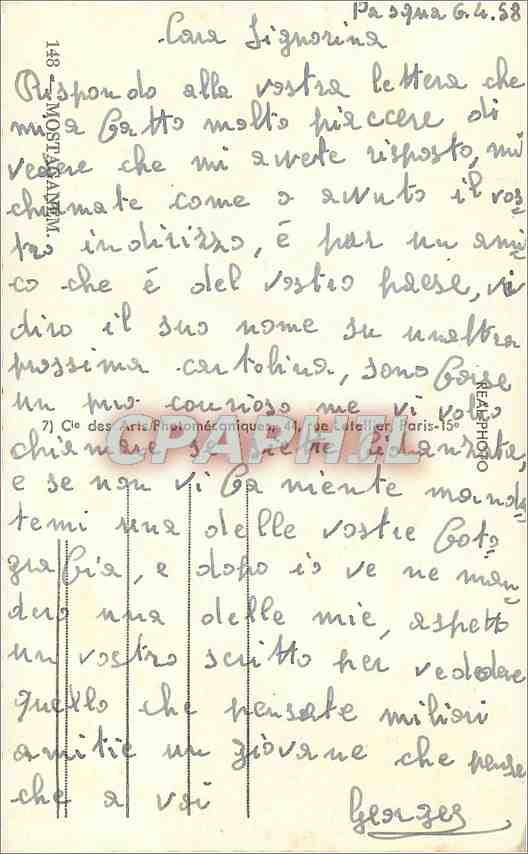 Pasqua 6.4.58
Cara Signorina
Rispondo alla vostra lettera che
mi a fatto molto piaccere di
vedere che mi avvete risposto, mi
chiamate come o avvuto il vos-
tro indirizzo, é par un ami-
co che é del vostro paese, vi
diro il suo nome su unaltra
prossima cartolina, sono forse
un pro courioso me vi volio
chiamare se siete fianzata,
e se non vi fa niente manda-
temi una delle vostre foto-
grafia, e dopo io ve ne man-
dero una delle mie, aspetto
un vostro scritto per vedere
quello che pensate miliori
amitie un giovane che pense
che a voi
Georges
148 - MOSTAGANEM.
7) Cie des Arts Photomécaniques, 44, rue Letellier, Paris-15e
REAL PHOTO
CPAPHIL